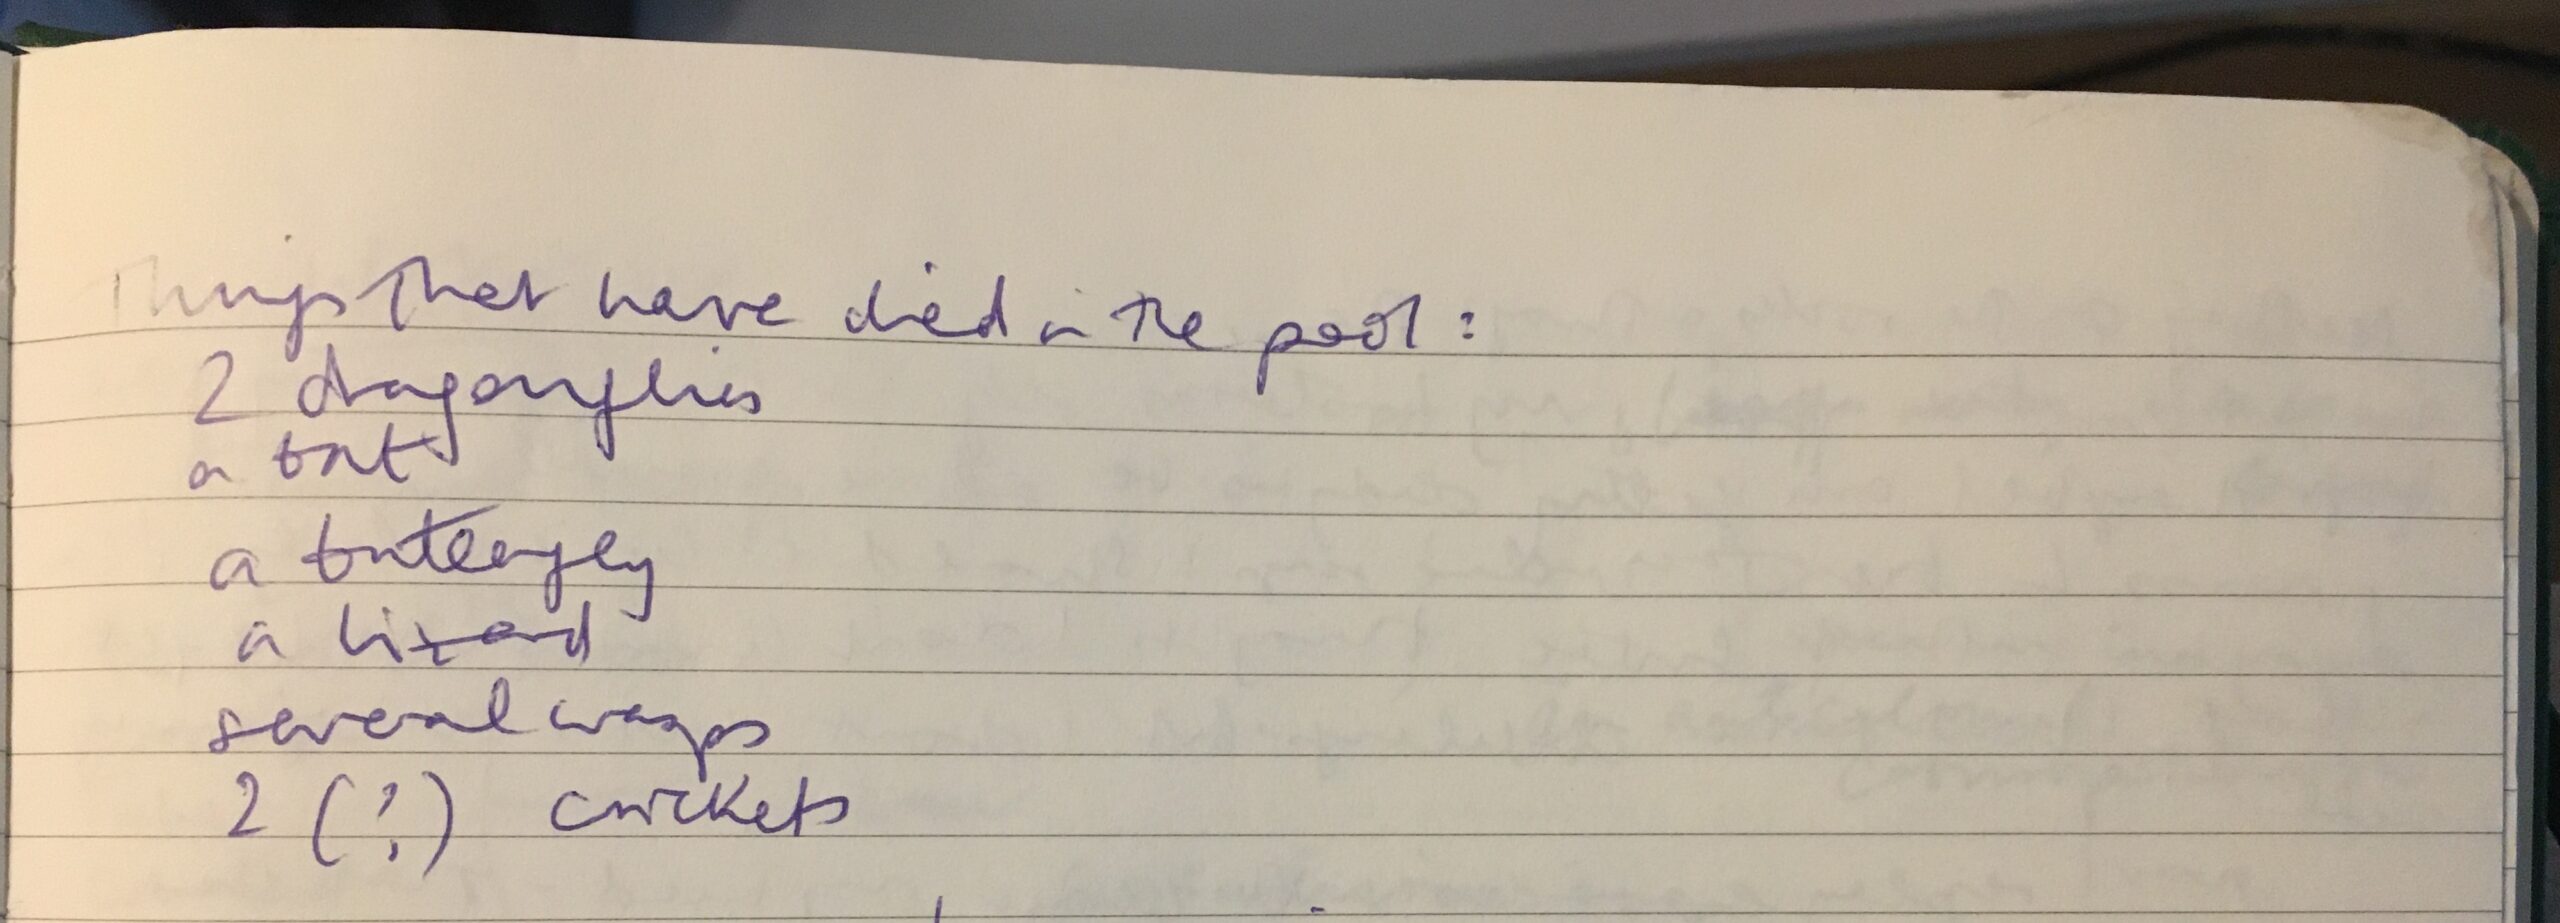 Things that have died in the pool:
2 dragonflies
a bat
a butterfly
a lizard
several wasps
2 (?) crickets